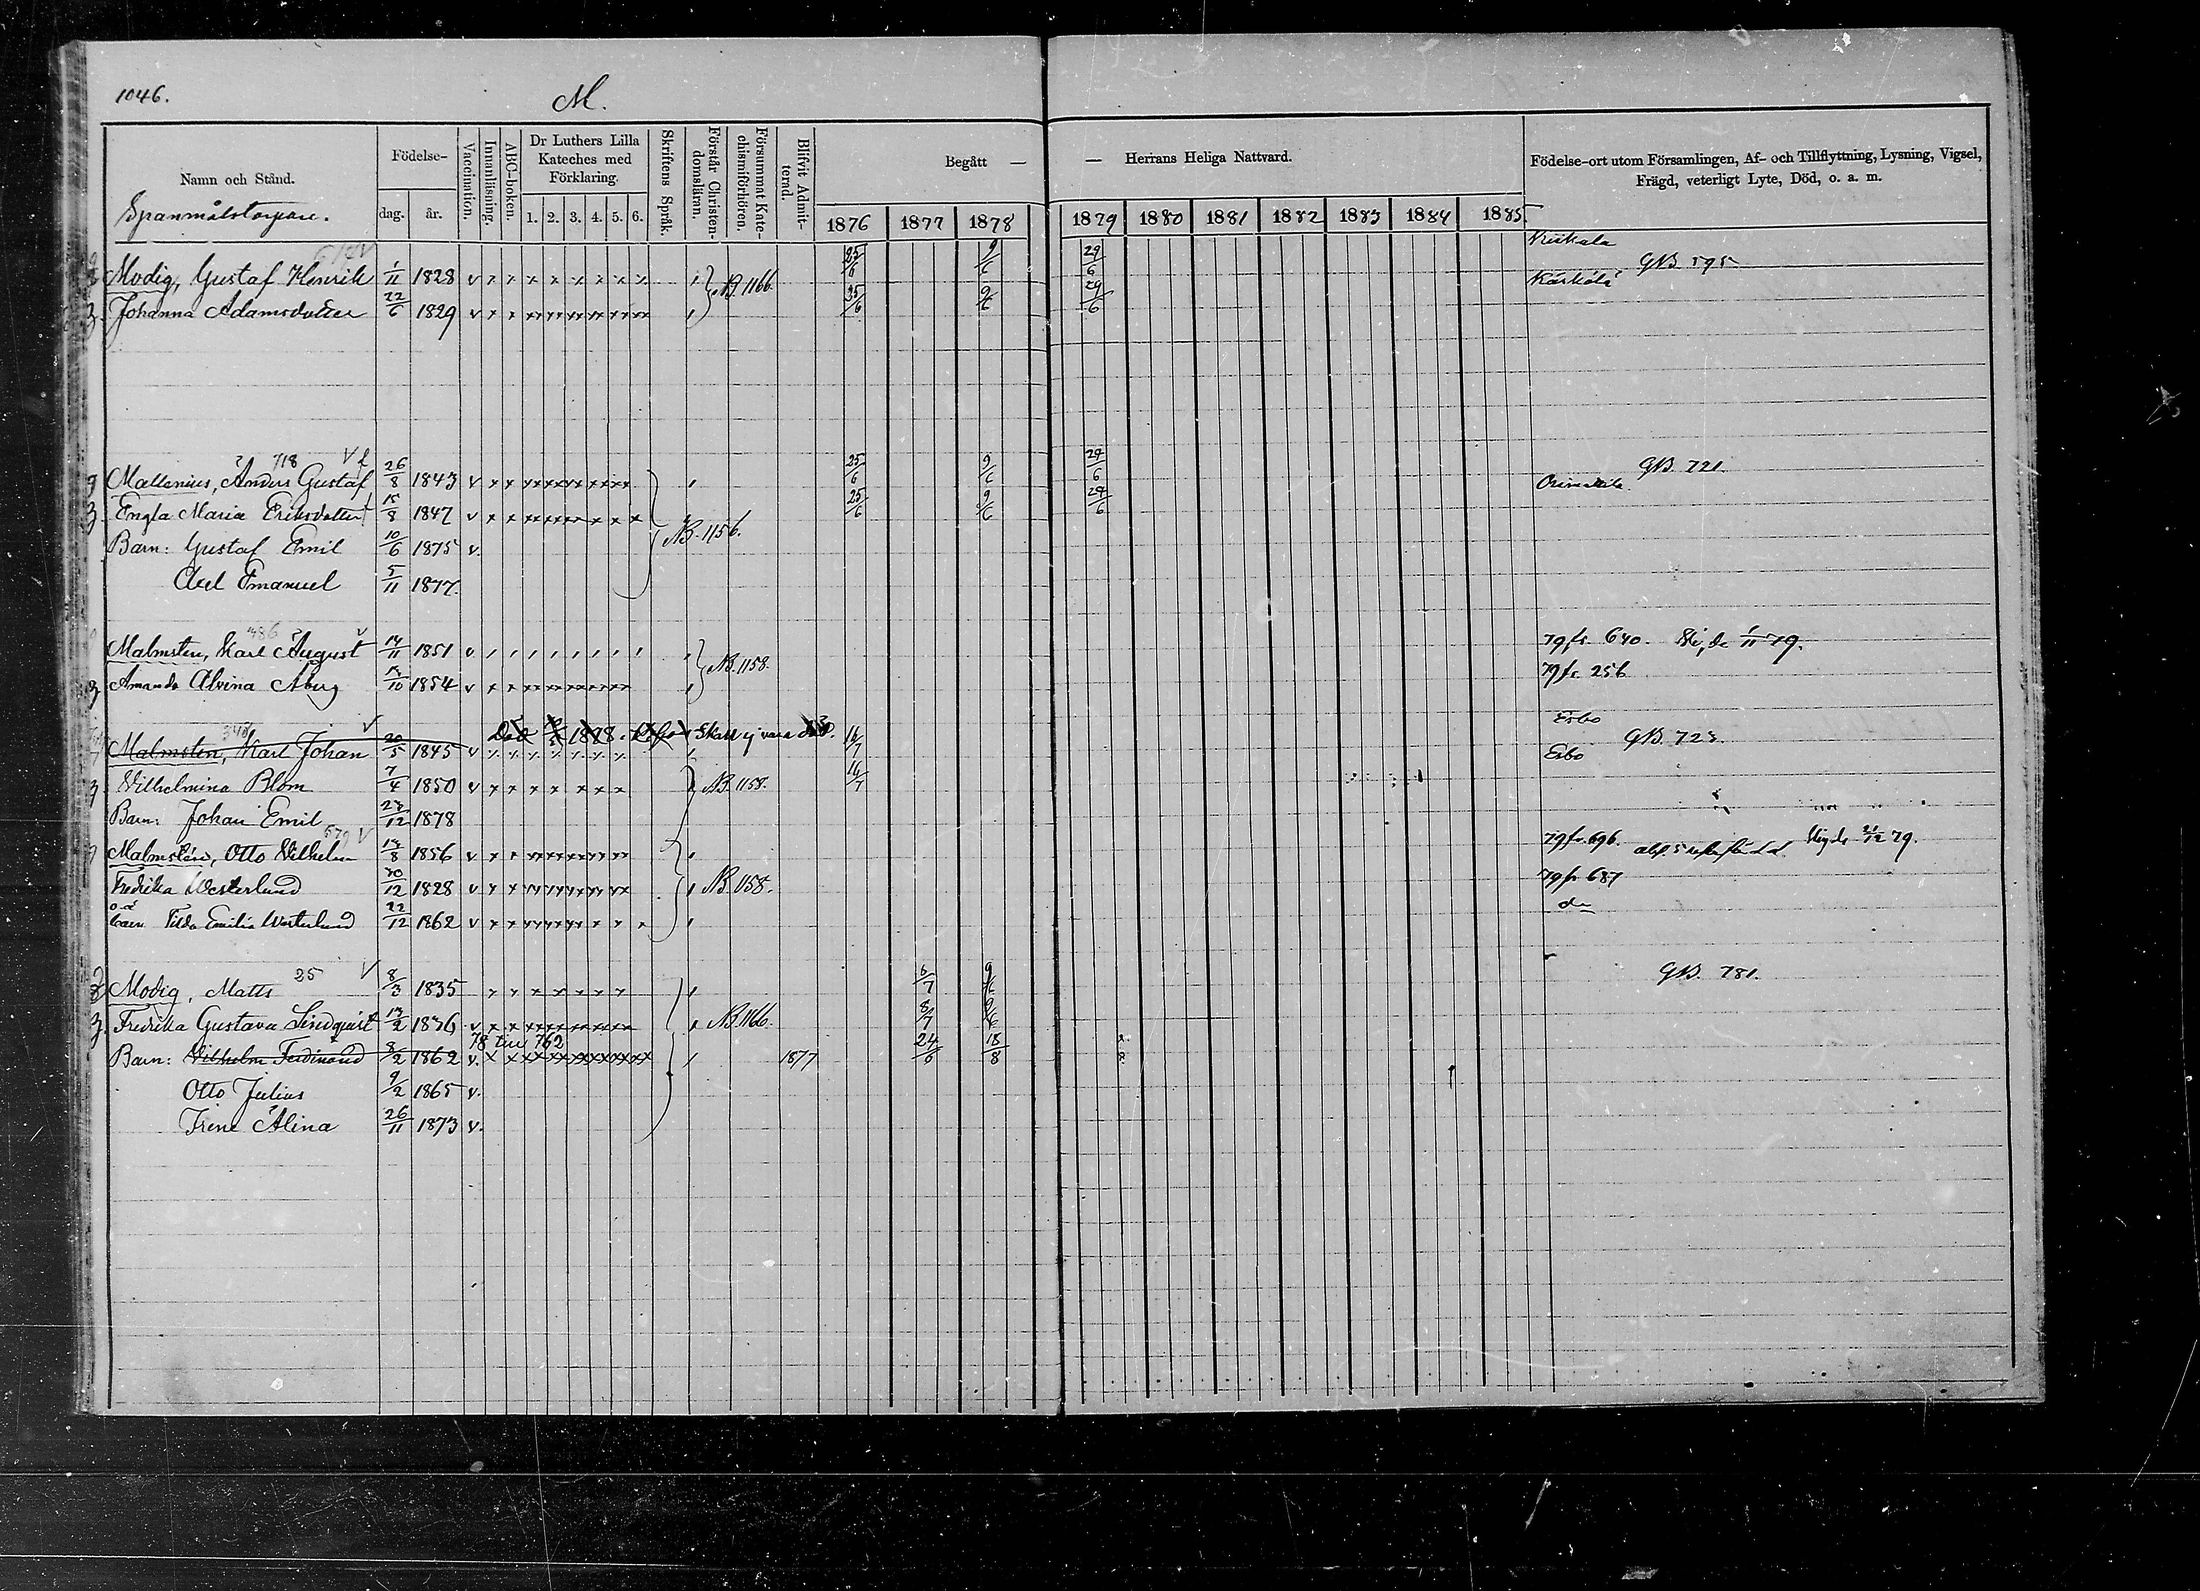 1046.
M.
Namn och Stånd.
Födelse-
dag. år.
Vaccination.
Innanläsning.
ABC-boken.
Dr Luthers Lilla Kateches med Förklaring.
1. 2. 3. 4. 5. 6.
Skriftens Språk.
Förstår Christendomsläran.
Försummat Katechismiförhören.
Blifvit Admitterad.
Begått — — Herrans Heliga Nattvard.
Födelse-ort utom Församlingen, Af- och Tillflyttning, Lysning, Vigsel,
Frägd, veterligt Lyte, Död, o. a. m.
1876 1877 1878 1879 1880 1881 1882 1883 1884 1885.
Modig, Gustaf Henrik 1/11 1828 v NB. 1166. 25/6 9/6 29/6 GB 595
Johanna Adamsdotter 22/6 1829 v 25/6 9/6 29/6
718
Mallenius, Anders Gustaf 26/8 1843 v 25/6 9/6 29/6 GB. 721.
Engla Maria Eriksdotter 15/8 1847 v NB. 1156. 25/6 9/6 29/6
Barn: Gustaf Emil 10/6 1875 v.
Axel Emanuel 5/11 1877.
486
Malmsten, Karl August 14/11 1851 v. NB. 1158. 79 fr. 640. 1/11 79.
Amanda Alvina Åberg 1854 v 79 fr 256
Död 1878. Skall ej vara död.
Esbo
Malmsten, Karl Johan 20/5 1845 v 16/7 GB. 723.
Esbo
Vilhelmina Blom 7/4 1850 v NB. 1158. 16/7
Barn: Johan Emil 1878
679
Malmstén, Otto Vilhelm 1856 v 79 fr. 696. 79.
Fredrika Westerlund 30/12 1828 v NB. 1158. 79 fr 687
o. ä.
barn Tilda Emilia Westerlund 22/12 1862 v do
25
Modig, Matts 8/3 1835 6/7 9/6 GB. 781.
Fredrika Gustava Lindquist 13/2 1836 v NB. 1166. 8/7 9/6
78 till 762
Barn: Vilhelm Ferdinand 8/2 1862 v. 1877 24/6 18/8
Otto Julius 9/2 1865 v.
Irene Alina 26/11 1873 v.